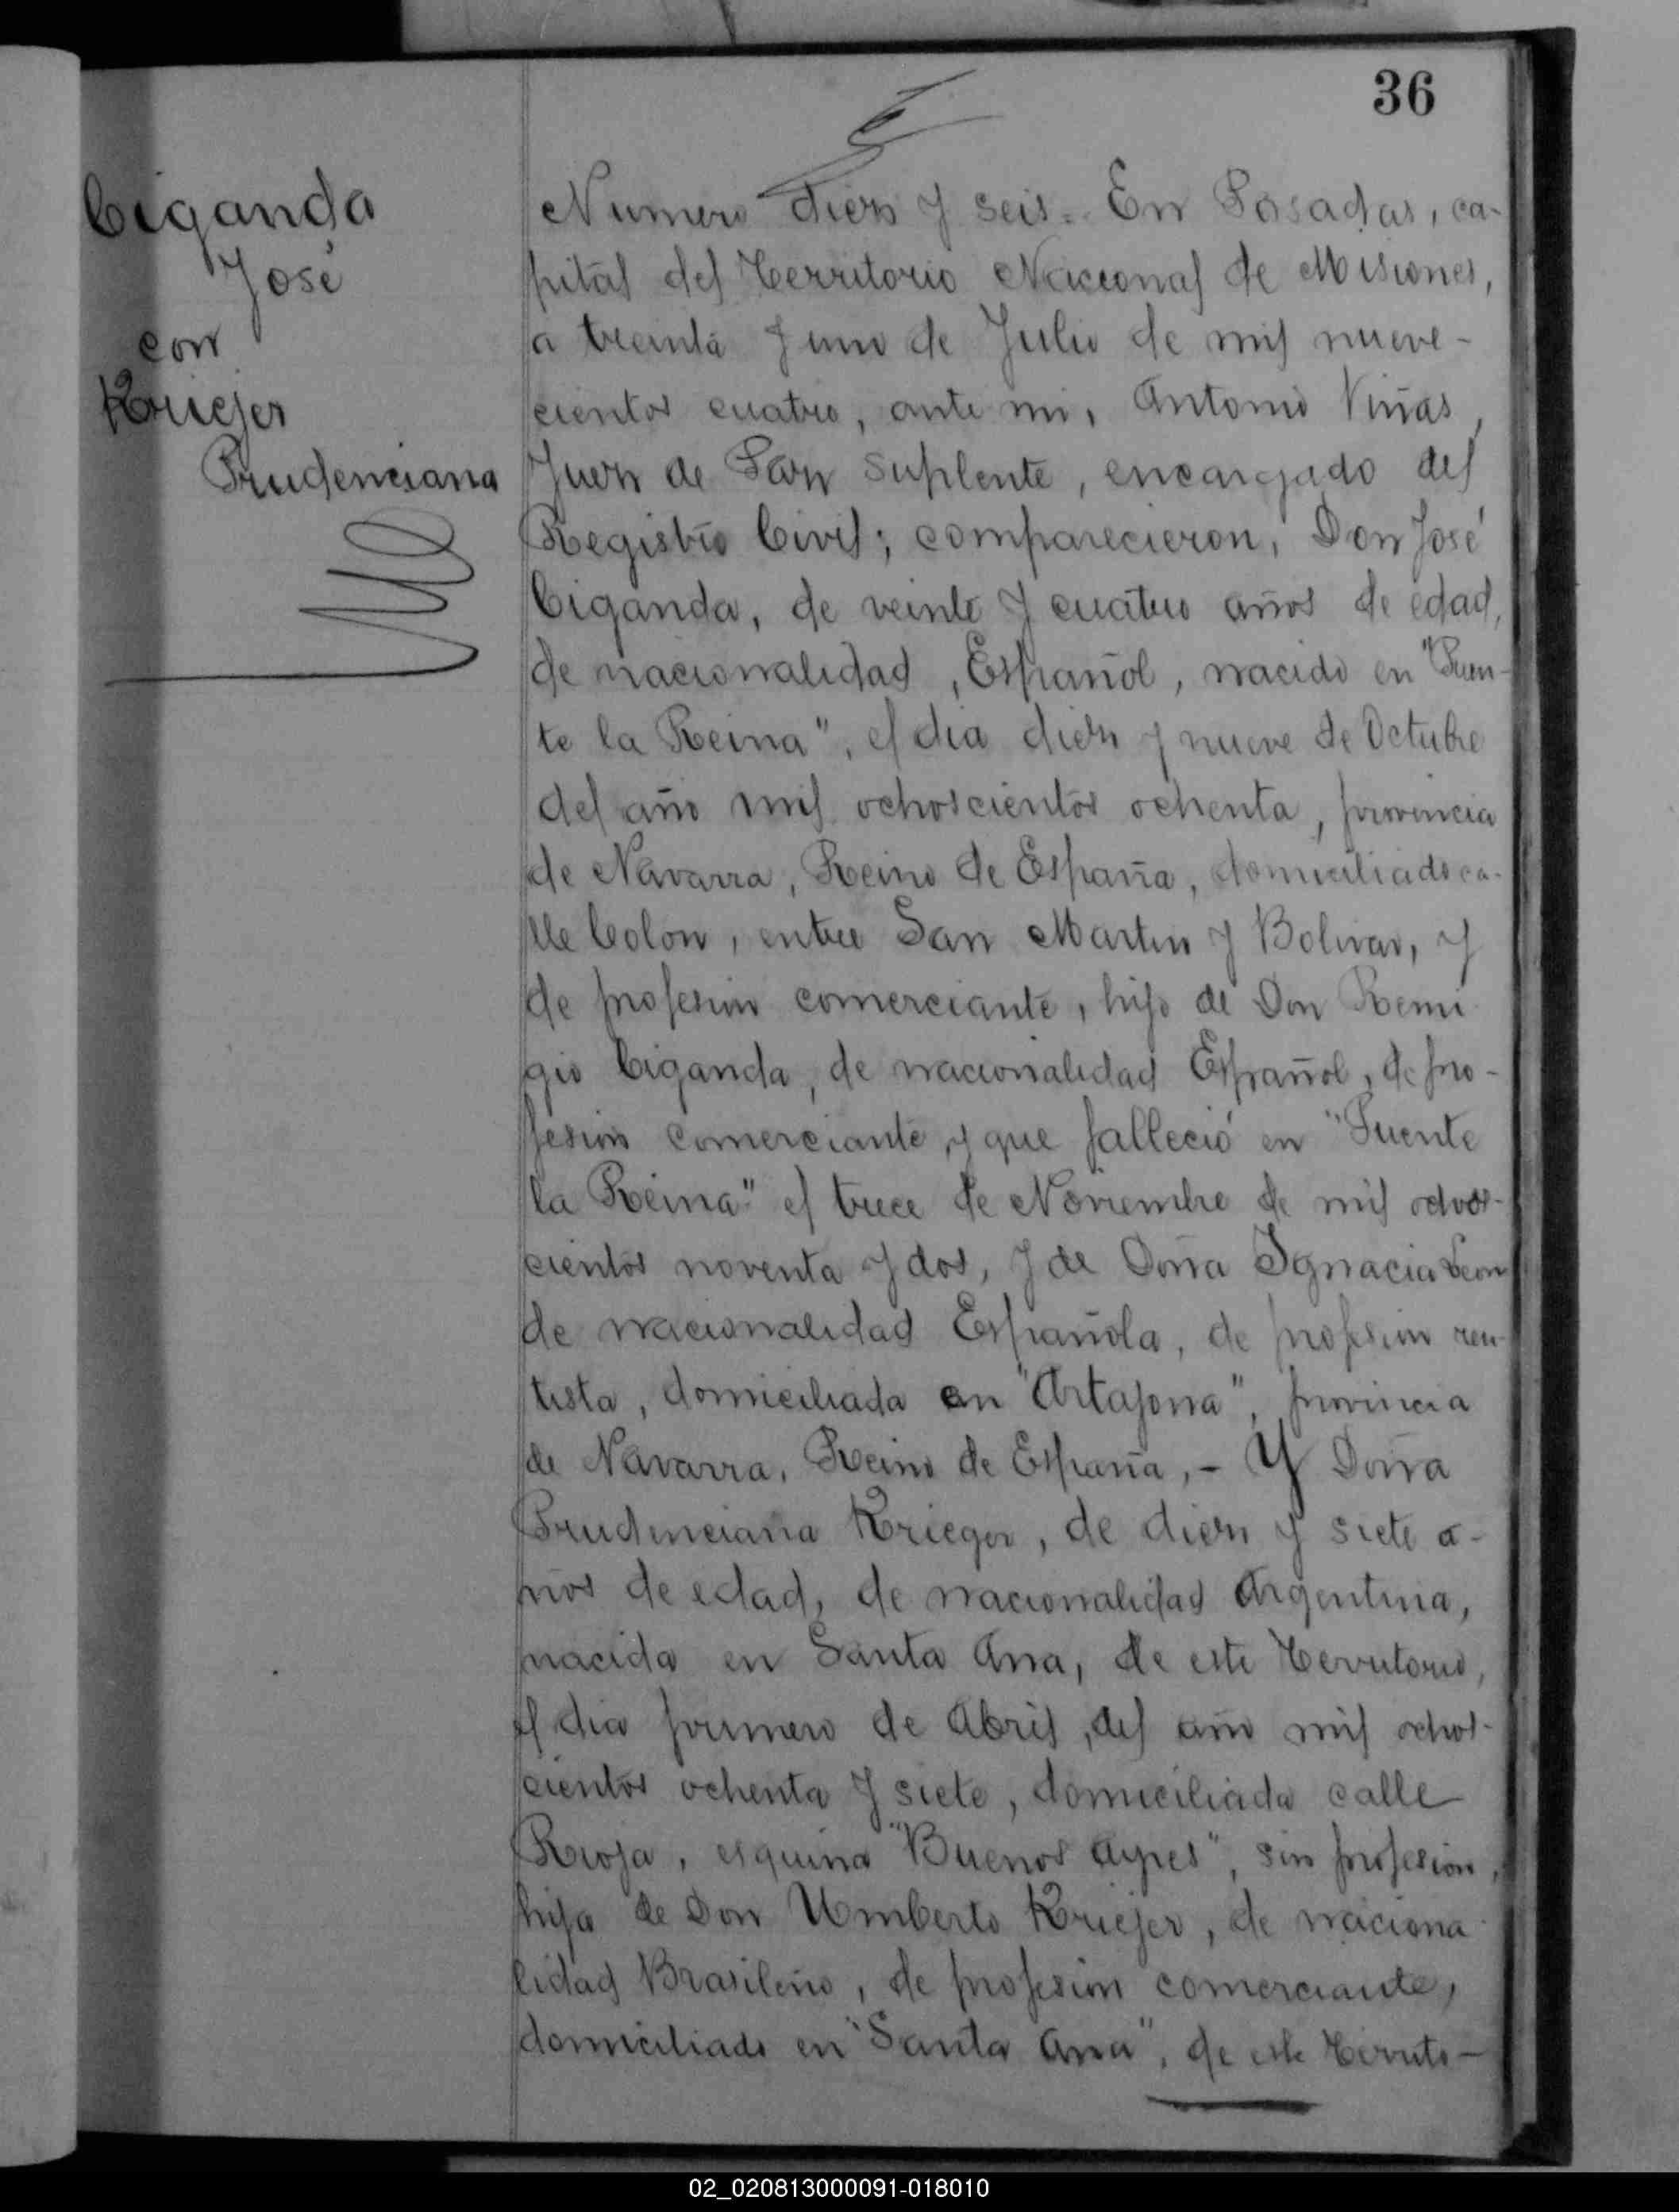 36
Ciganda
José
con
Kriejer
Prudenciana
Numero diez y seis. En Posadas, ca-
pital del Territorio Nacional de Misiones,
a treinta y uno de Julio de mil nueve-
cientos cuatro, ante mi, Antonio Viñas,
Juez de Paz Suplente, encargado del
Registro Civil; comparecieron, Don José
Ciganda, de veinte y cuatro años de edad,
de nacionalidad, Español, nacido en "Puen-
te la Reina", el dia diez y nueve de Octubre
del año mil ochoscientos ochenta, provincia
de Navarra, Reino de España, domiciliado ca-
lle Colon, entre San Martin y Bolivar, y
de profesion comerciante, hijo de Don Remi
gio Ciganda, de nacionalidad Español, de pro-
fesion comerciante, y que falleció en "Puente
la Reina" el trece de Noviembre de mil ochos-
cientos noventa y dos, y de Doña Ignacia Leon
de nacionalidad Española, de profesion ren-
tista, domiciliada en "Artajona", provincia
de Navarra, Reino de España, - Y Doña
Prudenciana Krieger, de diez y siete a-
ños de edad, de nacionalidad Argentina,
nacida en Santa Ana, de este Territorio,
el dia primero de Abril, del año mil ochos-
cientos ochenta y siete, domiciliada calle
Rioja, esquina "Buenos Ayres", sin profesion,
hija de Don Umberto Kriejer, de naciona
lidad Brasileño, de profesion comerciante,
domiciliado en "Santa Ana", de este Territo-
02_020813000091-018010